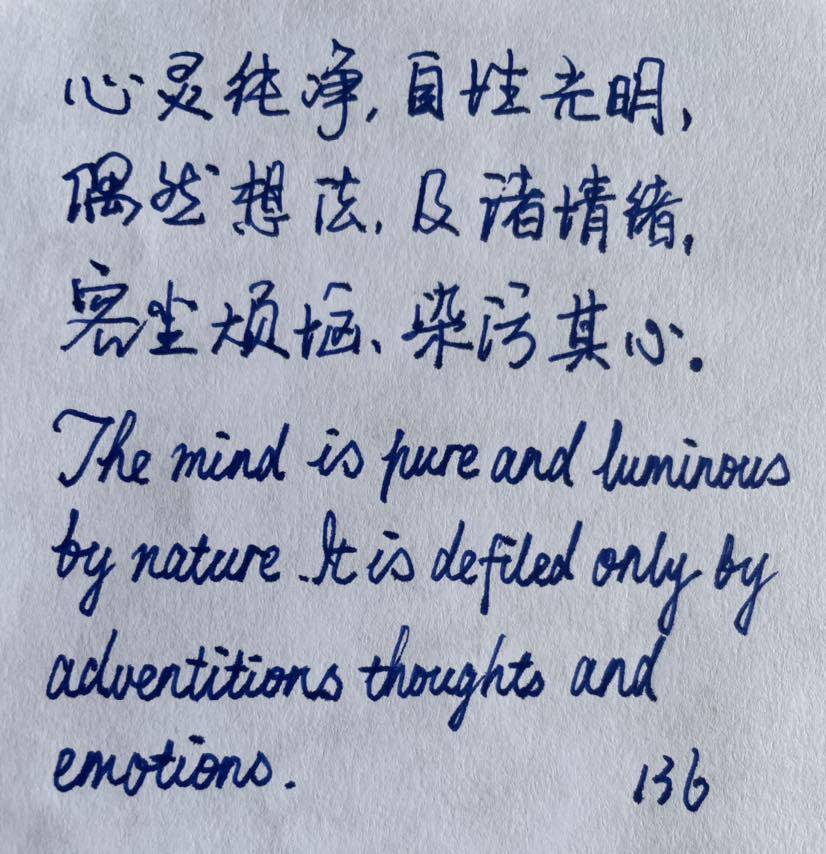 心灵纯净,自性光明,
偶然想法,及诸情绪,
客尘烦恼、染污其心.
The mind is pure and luminous
by nature. It is defiled only by
adventitions thoughts and
emotions.
136